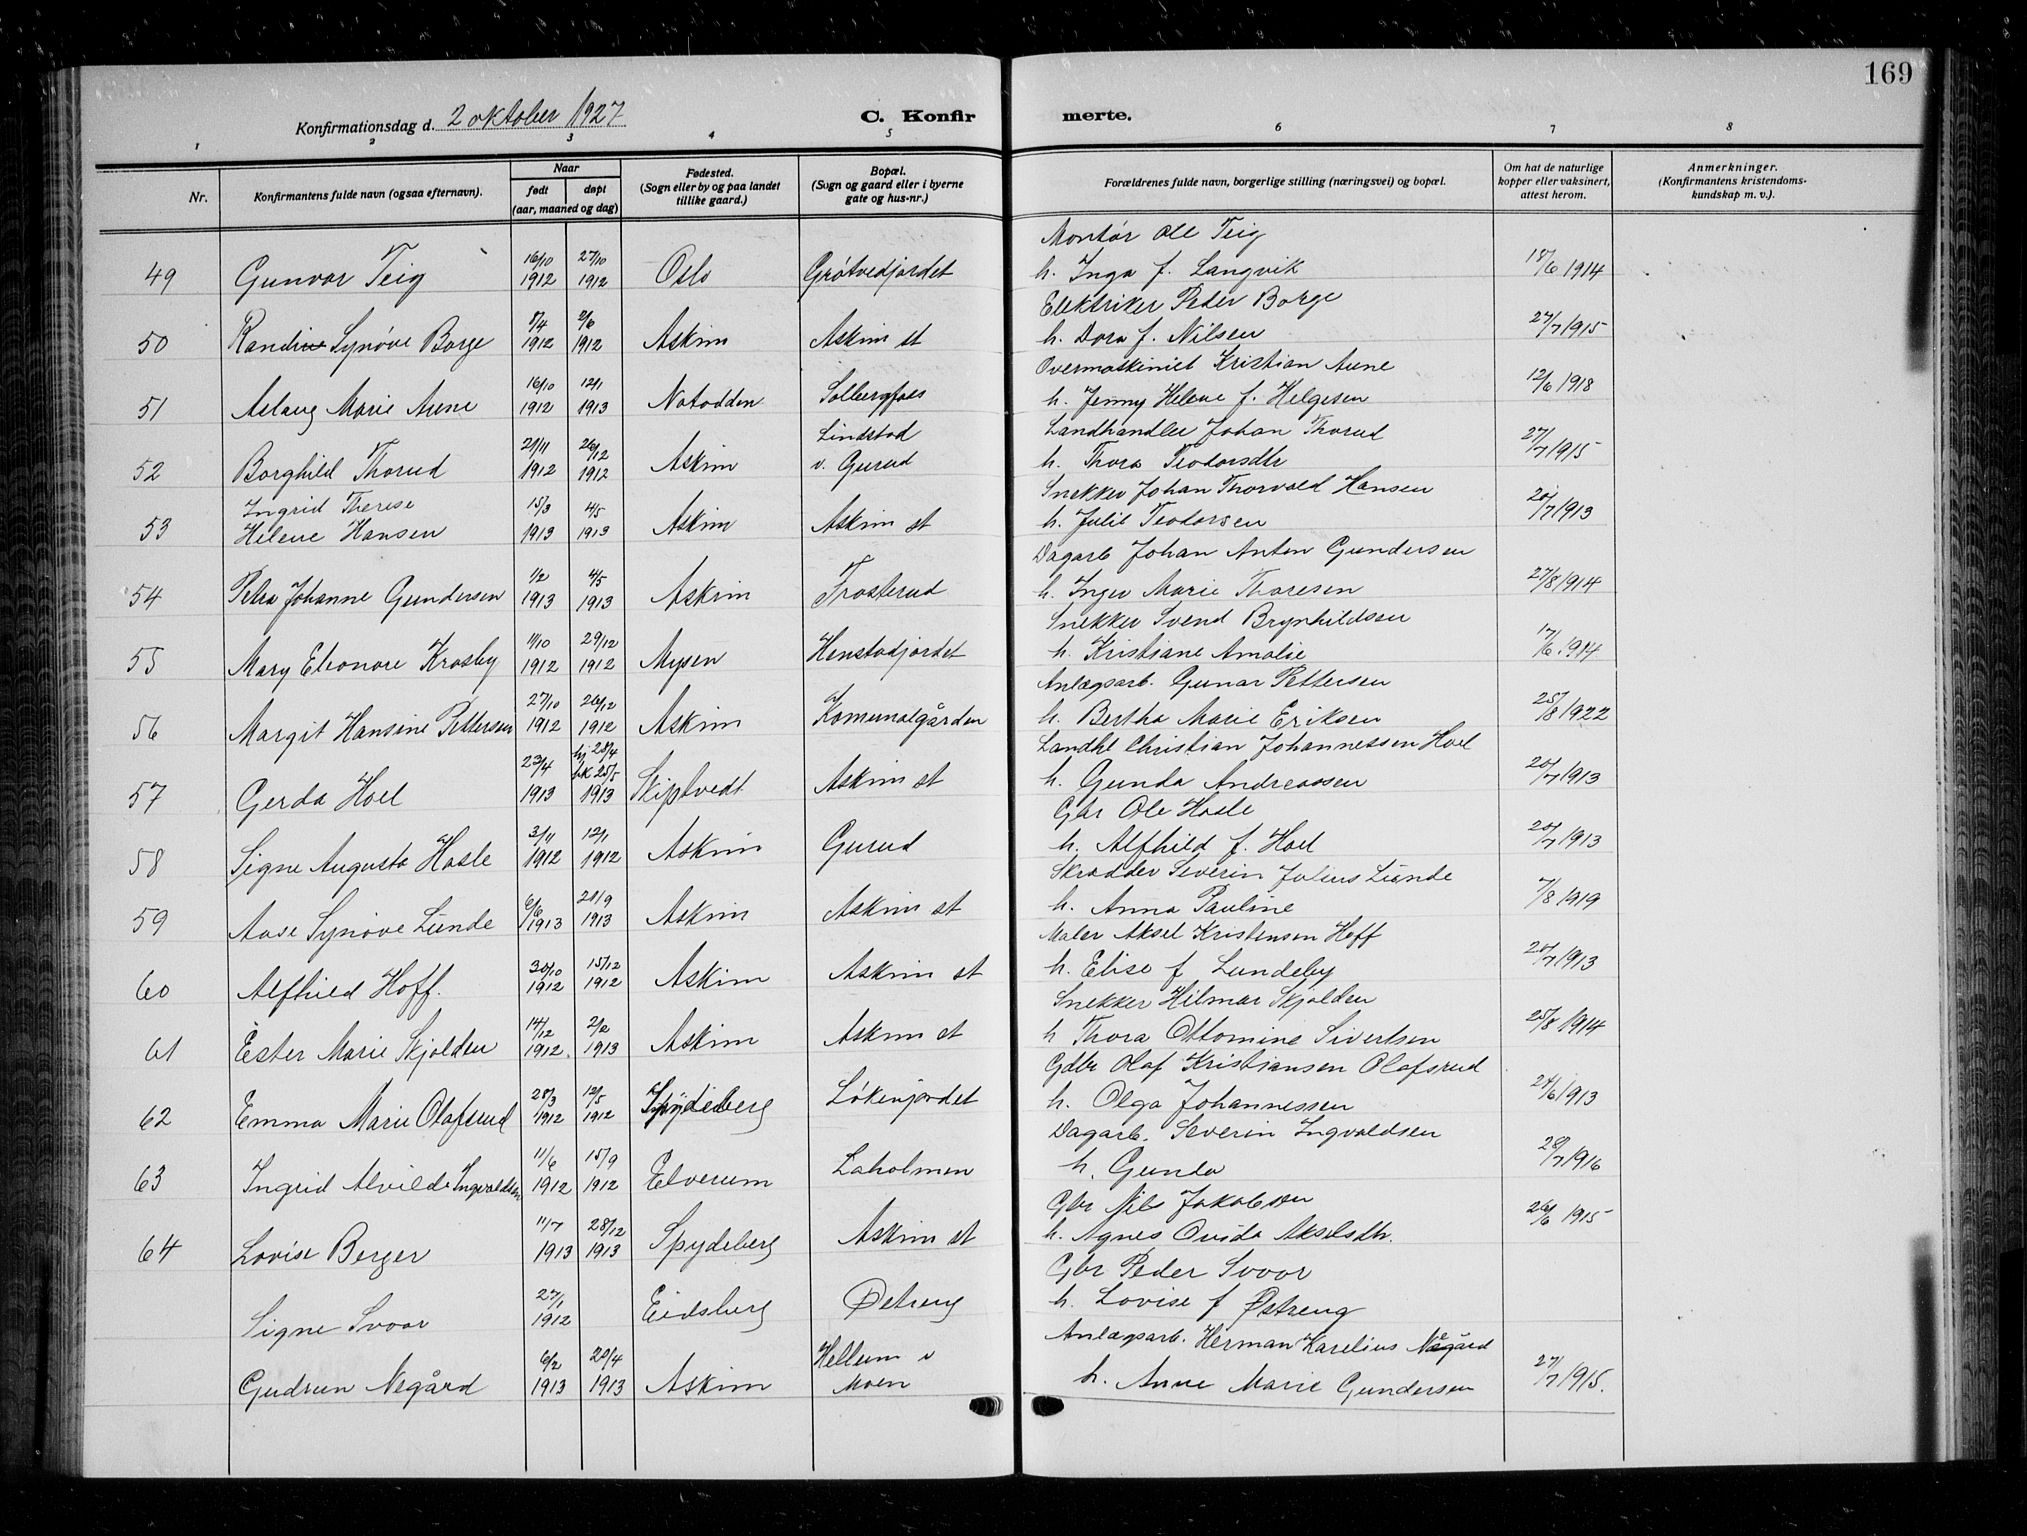 169
Konfirmationsdag d. 2 oktober 1927
C. Konfirmerte.
1 2 3 4 5 6 7 8
Nr.
Konfirmantens fulde navn (ogsaa efternavn).
Naar
født døpt
(aar, maaned og dag)
Fødested.
(Sogn eller by og paa landet
tillike gaard.)
Bopæl.
(Sogn og gaard eller i byerne
gate og hus-nr.)
Forældrenes fulde navn, borgerlige stilling (næringsvei) og bopæl.
Om hat de naturlige
kopper eller vaksinert,
attest herom.
Anmerkninger.
(Konfirmantens kristendoms-
kundskap m. v.).
49 Gunvor Teig 16/10 1912 27/10 1912 Oslo Grøtvedjordet Montør Ole Teig
h. Inga f. Langvik 18/6 1914
50 Randi Synøve Borge 8/4 1912 2/6 1912 Askim Askim st Elektriker Peder Borge
h. Dora f. Nilsen 27/7 1915
51 Aslaug Marie Aune 16/10 1912 12/1 1913 Notodden Solbergfoss Overmaskinist Kristian Aune
h. Jenny Helene f. Helgesen 12/6 1918
52 Borghild Thorud 21/11 1912 26/12 1912 Askim Lindstad
v. Gurud Landhandler Johan Thorud
h. Thora Teodorsdtr 27/7 1915
53 Ingrid Therese
Helene Hansen 15/3 1913 4/5 1913 Askim Askim st Snekker Johan Thorvald Hansen
h. Julie Teodorsen 20/7 1913
54 Petra Johanne Gundersen 1/2 1913 4/5 1913 Askim Trosterud Dagarb Johan Anton Gundersen
h. Inger Marie Thoresen 27/8 1914
55 Mary Eleonore Krosby 11/10 1912 29/12 1912 Mysen Henstadjordet Snekker Svend Brynhildsen
h. Kristiane Amalie 17/6 1914
56 Margit Hansine Pettersen 27/10 1912 26/12 1912 Askim Komunalgården Anlægsarb. Gunar Pettersen
h. Bertha Marie Eriksen 25/8 1922
57 Gerda Hoel 23/4 1913 hj 28/4 bk 25/5 1913 Skiptvedt Askim st Landhl Christian Johannessen Hoel
h. Gunda Andreassen 20/7 1913
58 Signe Augusta Hasle 3/11 1912 12/1 1912 Askim Gurud Gbr Ole Hasle
h. Alfhild f. Hoel 20/7 1913
59 Aase Synøve Lunde 6/6 1913 21/9 1913 Askim Askim st Skrædder Severin Julius Lunde
h. Anna Pauline 7/8 1919
60 Alfhild Hoff. 30/10 1912 15/12 1912 Askim Askim st Maler Aksel Kristensen Hoff
h. Elise f Lundeby 20/7 1913
61 Ester Marie Skjolden 14/12 1912. 2/2 1913 Askim Askim st Snekker Hilmar Skjolden
h Thora Ottomine Sivertsen 25/8 1914
62 Emma Marie Olafsrud 28/3 1912 12/5 1912 Spydeberg Løkenjordet Gdbr Olaf Kristiansen Olafsrud
h. Olga Johannessen 24/6 1913
63 Ingrid Alvilde Ingvaldsen 11/6 1912 15/9 1912 Elverum Laholmen Dagarb. Severin Ingvaldsen
h. Gunda 28/7 1916
64 Lovise Berger 11/7 1913 28/12 1913 Spydeberg Askim st Gbr Nils Jakobsen
h. Agnes Ovida Akselsdtr. 26/6 1915
Signe Svoor 27/1 1912 Eidsberg Østreng Gbr Peder Svoor
h. Lovise f Østreng
Gudrun Negård 6/2 1913 20/4 1913 Askim Hellum v
Moen Anlægsarb. Herman Karelius Negård
h. Anne Marie Gundersen 27/7 1915.